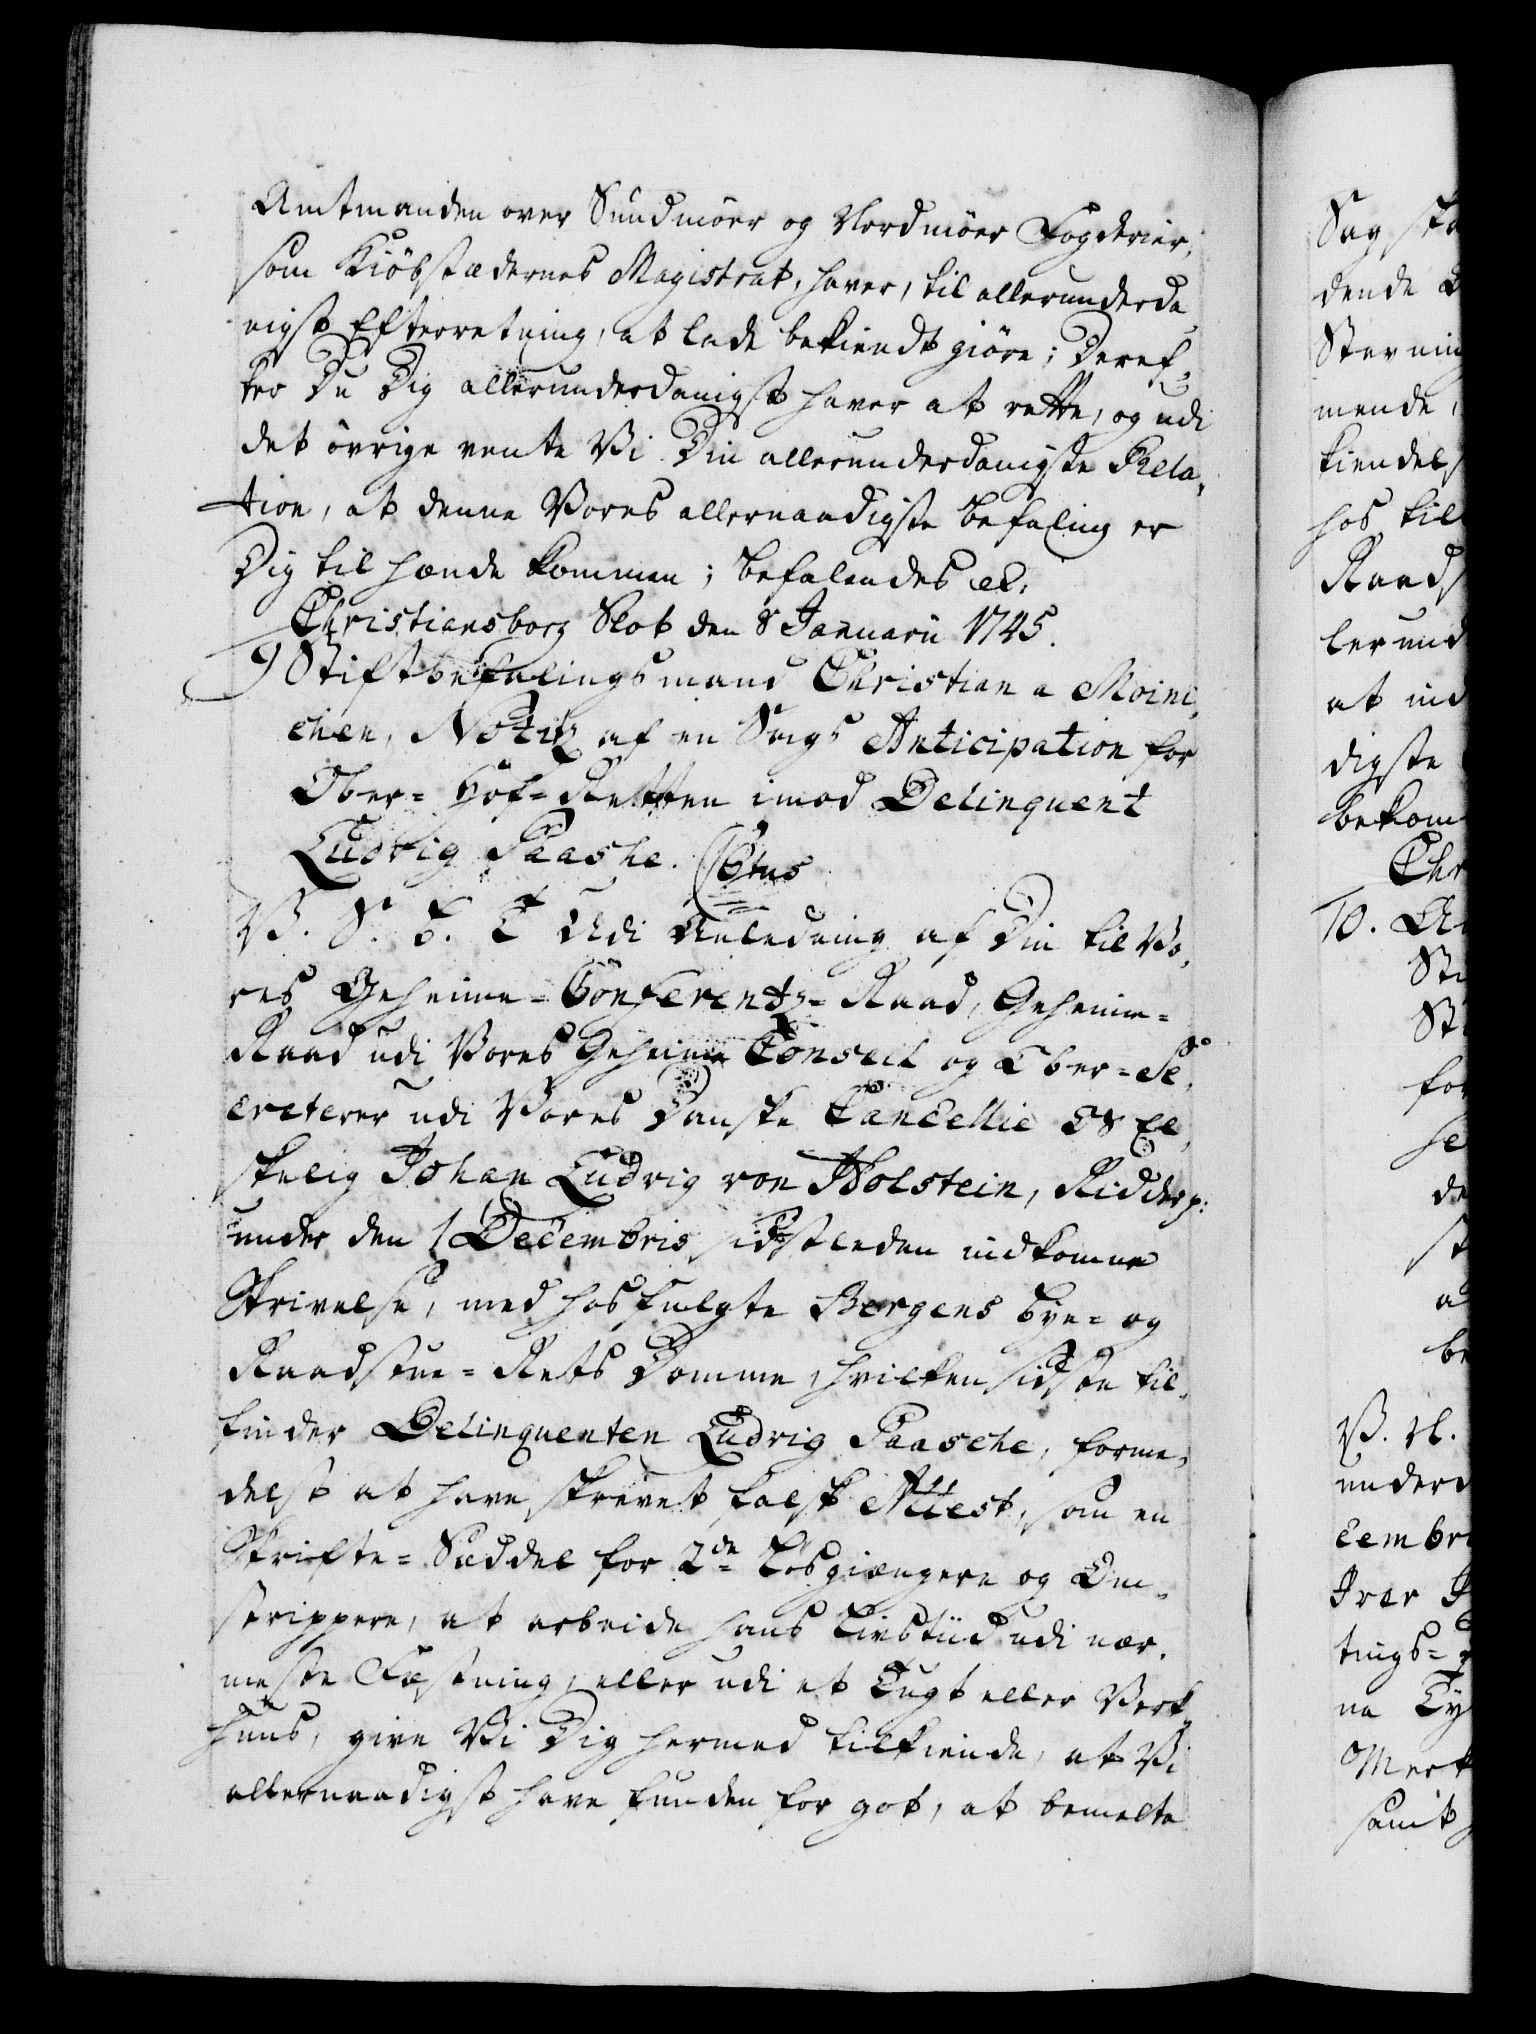 Amtmanden over Sundmöer og Nordmöer Fogderier,
som Kiöbstædernes Magistrat, haver, til allerunderda
nigst Efterretning, at lade bekiendtgiöre; Deref-
ter Du Dig allerunderdanigst haver at rette, og udi
det övrige vente Vi Din allerunderdanigste Rela-
tion, at denne Vores allernaadigste Befaling er
Dig til hænde kommen; Befalendes etc:
Christiansborg Slot den 8 Januarii 1745.
9 Stiftbefalingsmand Christian a Moini-
chen, Notitz af en Sags Anticipation for
Ober-Hof-Retten imod Delinquent
Ludvig Paashe.
V. S. G. T. Udi Anledning af Din til Vo-
res Geheime-Conferentz-Raad, Geheime-
Raad udi Vores Geheime Conseil og Ober-Se-
creterer udi Vores Danske Cancellie Os El-
skelig Johan Ludvig von Holstein, Ridder p:
under den 1 Decembris sidstleden indkomne
Skrivelse, med hosfulgte Bergens Bye- og
Raadstue-Rets Domme, hvilken sidste til-
finder Delinquenten Ludvig Paasche, forme-
delst at have skrevet falsk Attest, som en
Skrifte-Seddel for 2de Lösgiængere og Om-
strippere, at arbeide hans Livstiid udi nær-
meste Fæstning, eller udi et Tugt eller Verk
huus, give Vi Dig hermed tilkiende, at Vi
allernaadigst have funden for got, at bemelte
Sag
dende
Stævning
mende,
kiendels
hos til
Raads
lerund
at ind
digste
bekom
Chr
10. An
St
St
for
se
de
st
a
be
V. N.
underd
cembri
Iver
tings-
na Ty
Merk
samt